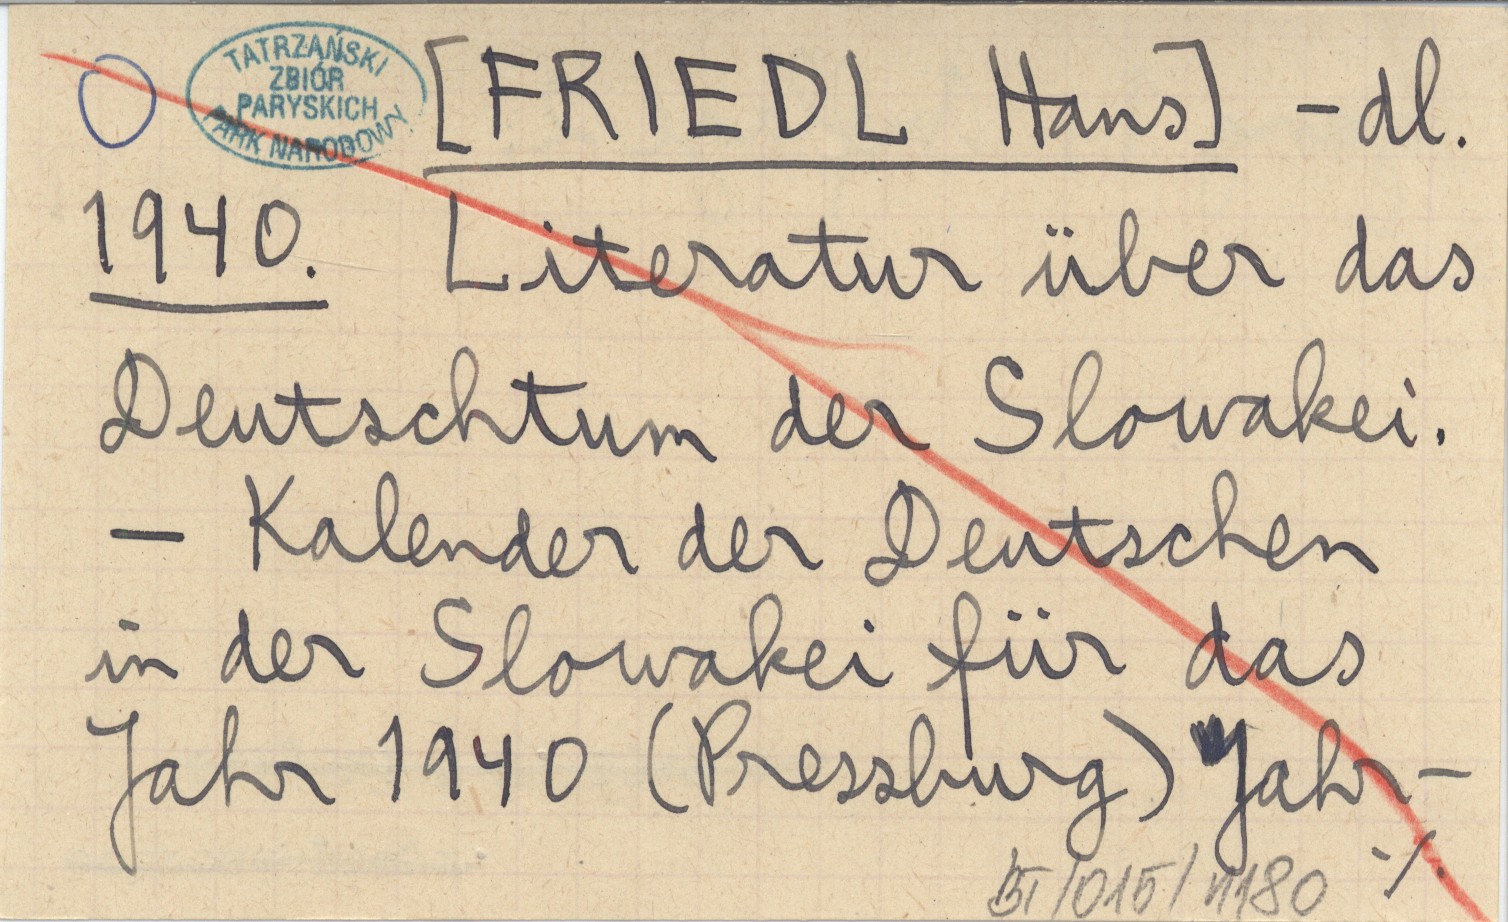 TATRZAŃSKI
ZBIÓR
PARYSKICH
PARK NARODOWY
[FRIEDL Hans] – dl.
1940. Literatur über das
Deutschtum der Slowakei.
– Kalender der Deutschen
in der Slowakei für das
Jahr 1940 (Pressburg) Jahr-
·/.
BI/015/1180